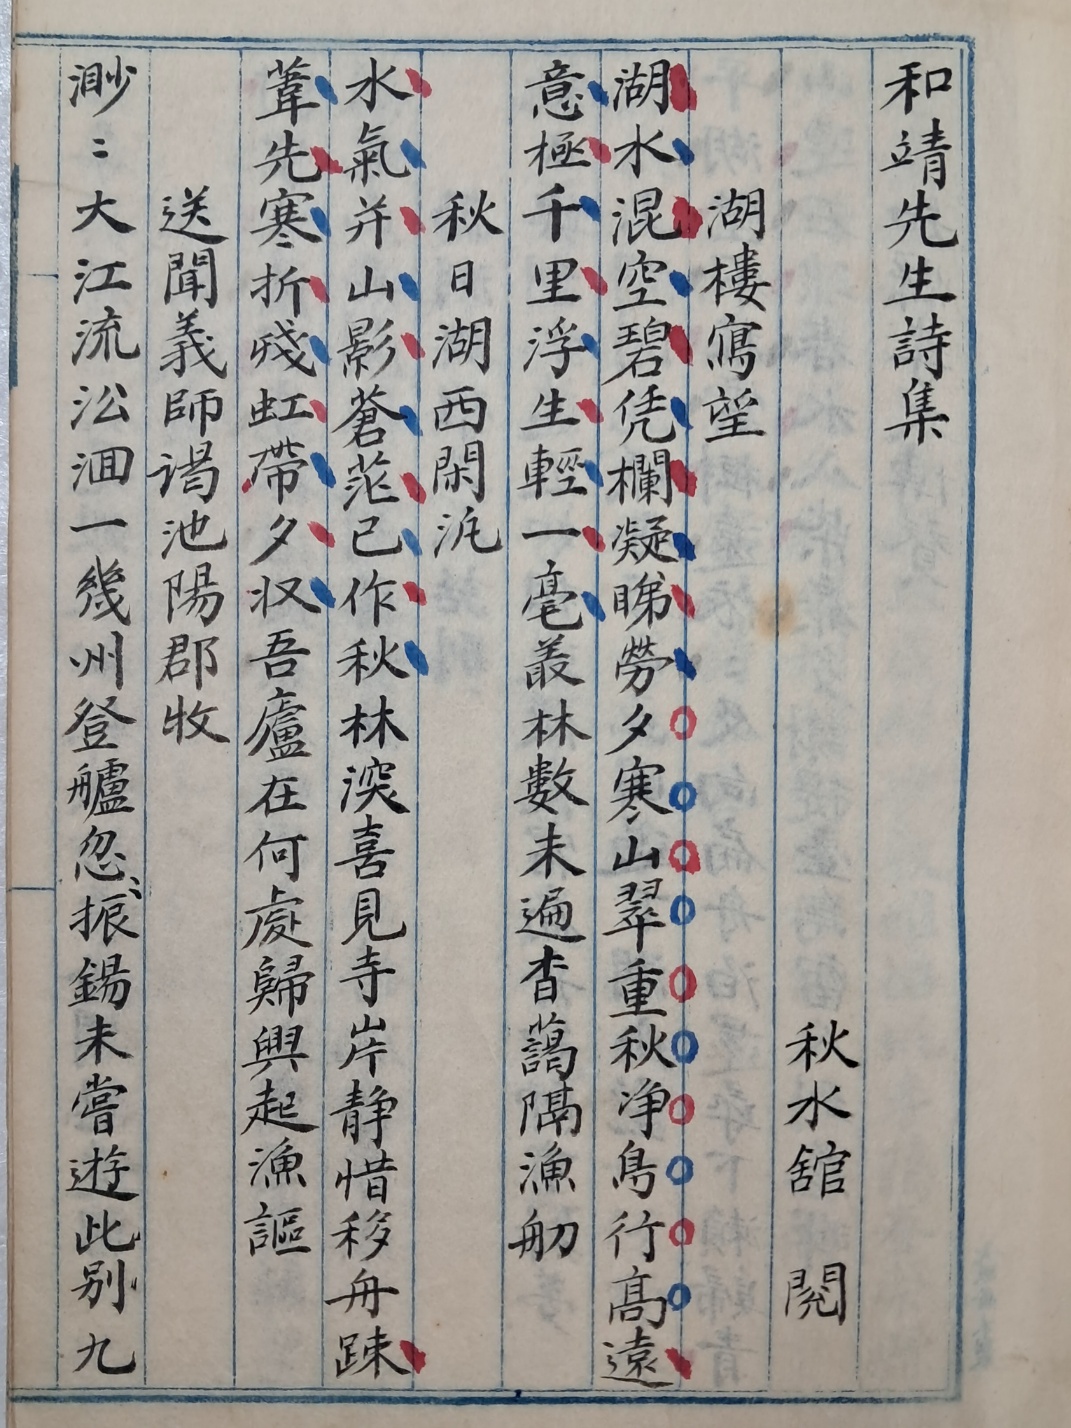 和靖先生詩集
秋水舘 閱
湖樓寫望
湖水混空碧凭欄凝睇勞夕寒山翠重秋净鳥行髙遠
意極千里浮生輕一毫叢林數未遍杳藹隔漁舠
秋日湖西閑泛
水氣并山影蒼茫已作秋林深喜見寺岸静惜移舟疎
葦先寒折殘虹帶夕収吾廬在何處歸興起漁謳
送聞義師謁池陽郡牧
渺〻大江流汃洄一幾州登艫忽振錫未嘗遊此别九